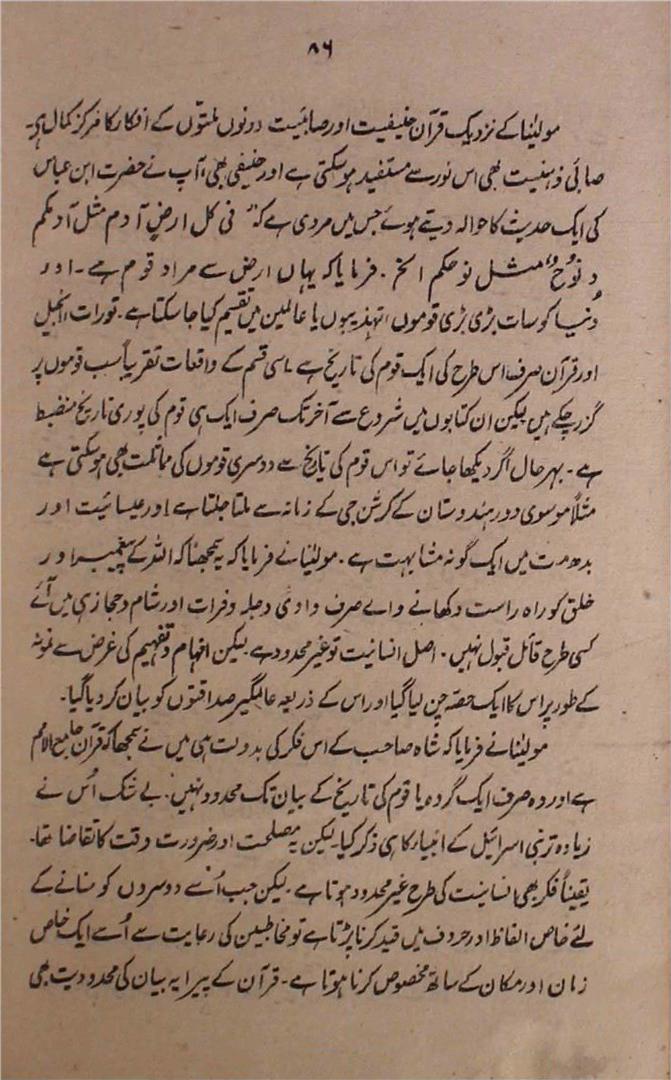 ۸۶
مولیٰنا کے نزدیک قرآن حنیفیت اور صابئیت دونوں ملتوں کے افکار کا مرکز کمال ہے۔
صابئی ذہنیت بھی اس نور سے مستفید ہو سکتی ہے اور حنیفی بھی، آپ نے حضرت ابن عباس
کی ایک حدیث کا حوالہ دیتے ہوئے جس میں مروی ہے کہ "فی کل ارضٍ آدم مثل آدمکم
و نوحٌ مثل نوحکم الخ۔ فرمایا کہ یہاں ارض سے مراد قوم ہے۔ اور
دنیا کو سات بڑی بڑی قوموں، تہذیبوں یا عالمین میں تقسیم کیا جا سکتا ہے۔ تورات انجیل
اور قرآن صرف اس طرح کی ایک قوم کی تاریخ ہے۔ اسی قسم کے واقعات تقریباً سب قوموں پر
گزر چکے ہیں لیکن ان کتابوں میں شروع سے آخر تک صرف ایک ہی قوم کی پوری تاریخ منضبط
ہے۔ بہر حال اگر دیکھا جائے تو اس قوم کی تاریخ سے دوسری قوموں کی مماثلت بھی ہو سکتی ہے
مثلاً موسوی دور ہندوستان کے کرشن جی کے زمانہ سے ملتا جلتا ہے اور عیسائیت اور
بدھ مت میں ایک گونہ مشابہت ہے۔ مولیٰنا نے فرمایا کہ یہ سمجھنا کہ اللہ کے پیغمبر اور
خلق کو راہ راست دکھانے والے صرف وادئ دجلہ و فرات اور شام و حجاز ہی میں آئے
کسی طرح قابل قبول نہیں۔ اصل انسانیت تو غیر محدود ہے لیکن افہام و تفہیم کی غرض سے نمونہ
کے طور پر اس کا ایک حصہ چن لیا گیا اور اس کے ذریعہ عالمگیر صداقتوں کو بیان کر دیا گیا۔
مولیٰنا نے فرمایا کہ شاہ صاحب کے اس فکر کی بدولت ہی میں نے سمجھا کہ قرآن جامع الامم
ہے اور وہ صرف ایک گروہ یا قوم کی تاریخ کے بیان تک محدود نہیں۔ بے شک اُس نے
زیادہ تر بنی اسرائیل کے انبیاء کا ہی ذکر کیا۔ لیکن یہ مصلحت اور ضرورت وقت کا تقاضا تھا۔
یقیناً فکر بھی انسانیت کی طرح غیر محدود ہوتا ہے۔ لیکن جب اُسے دوسروں کو سنانے کے
لئے خاص الفاظ اور حروف میں قید کرنا پڑتا ہے تو مخاطبین کی رعایت سے اُسے ایک خاص
زمان اور مکان کے ساتھ مخصوص کرنا ہوتا ہے۔ قرآن کے پیرایہ بیان کی محدودیت بھی